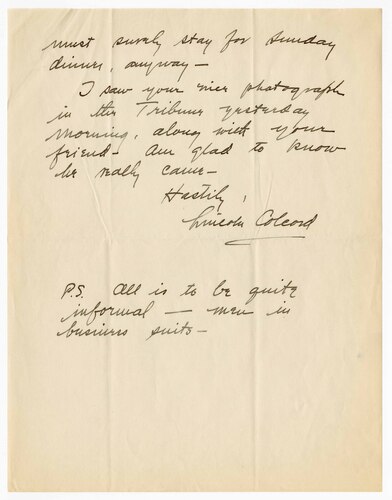 must surely stay for Sunday
dinner, anyway —
I saw your nice photograph
in the Tribune yesterday
morning, along with your
friend — Am glad to know
he really came —
Hastily,
Lincoln Colcord
P.S. All is to be quite
informal — men in
business suits —